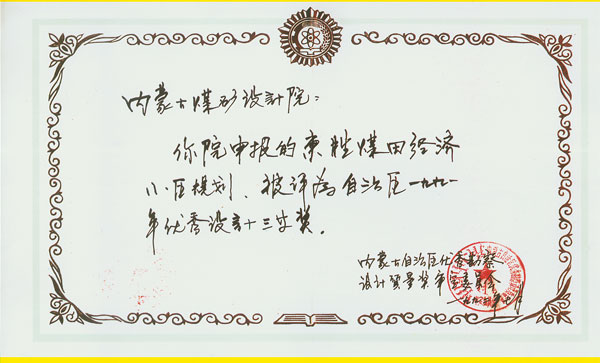 内蒙古煤矿设计院：
你院申报的东胜煤田经济
小区规划、被评为自治区一九九一
年优秀设计三等奖。
内蒙古自治区优秀勘察
设计质量奖审定委员会